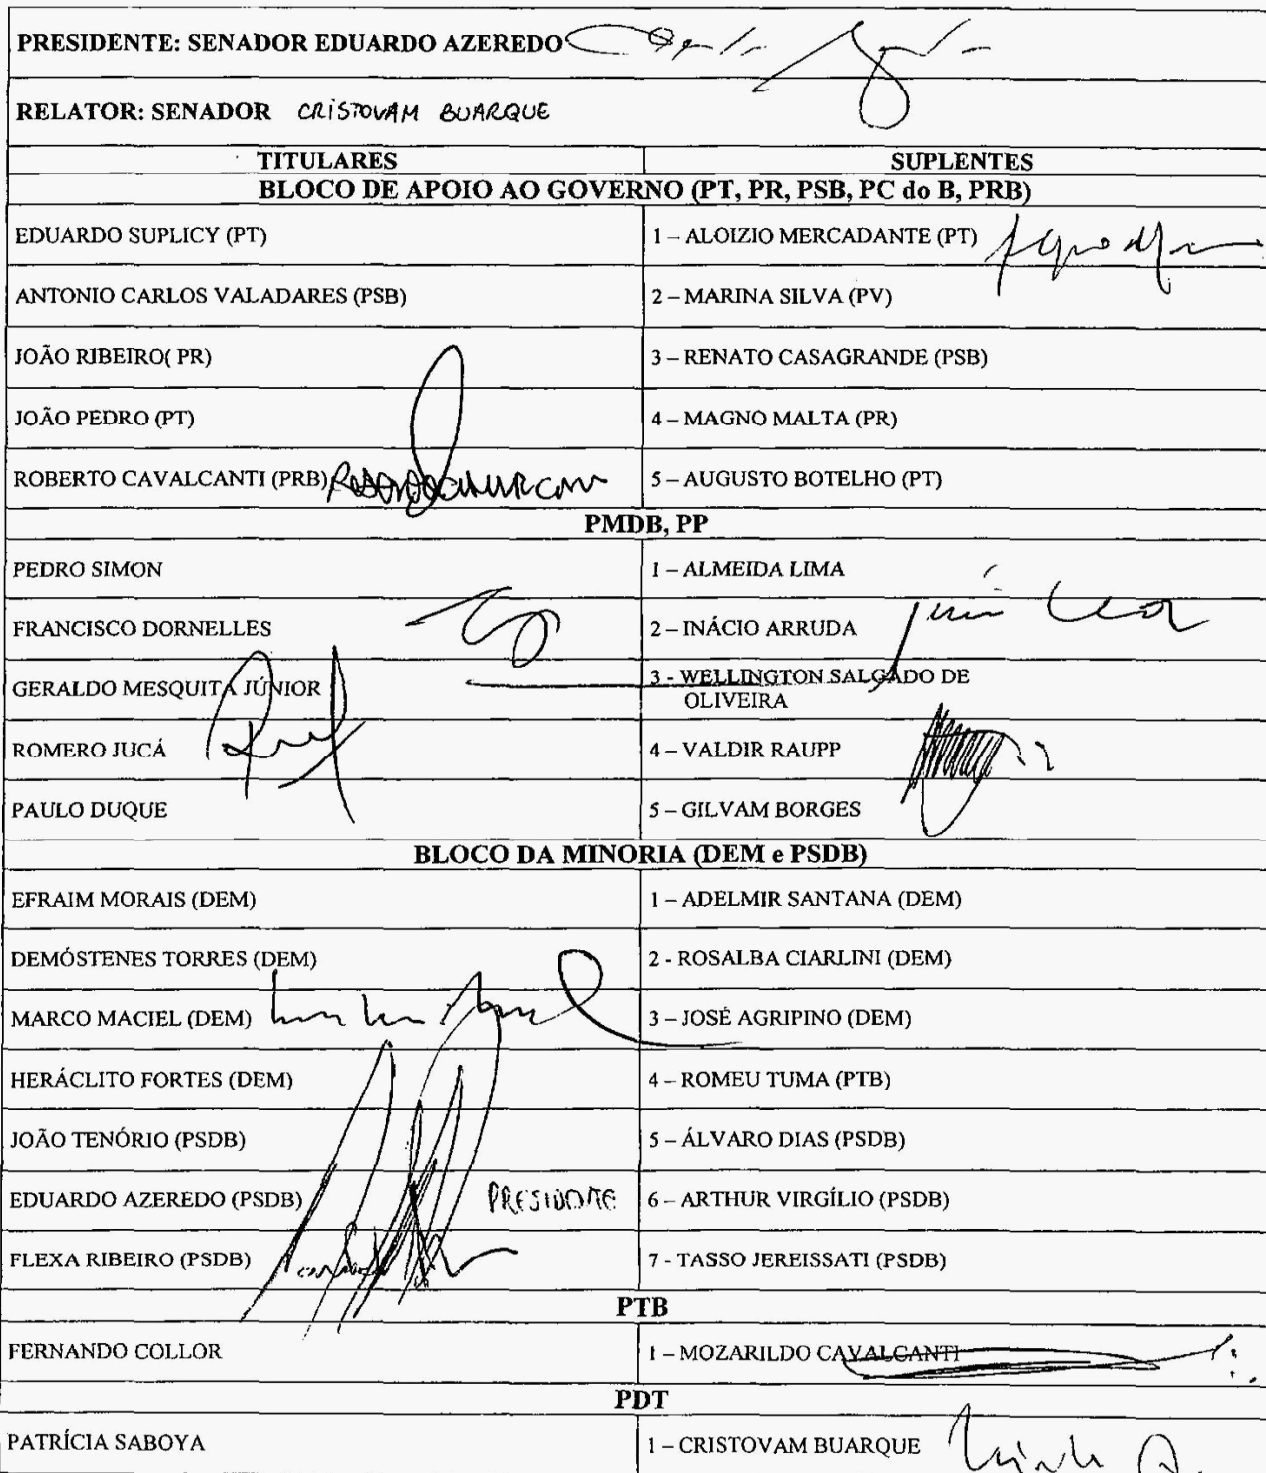 PRESIDENTE: SENADOR EDUARDO AZEREDO
RELATOR: SENADOR CRISTOVAM BUARQUE
TITULARES SUPLENTES
BLOCO DE APOIO AO GOVERNO (PT, PR, PSB, PC do B, PRB)
EDUARDO SUPLICY (PT) 1 – ALOIZIO MERCADANTE (PT)
ANTONIO CARLOS VALADARES (PSB) 2 – MARINA SILVA (PV)
JOÃO RIBEIRO( PR) 3 – RENATO CASAGRANDE (PSB)
JOÃO PEDRO (PT) 4 – MAGNO MALTA (PR)
ROBERTO CAVALCANTI (PRB) 5 – AUGUSTO BOTELHO (PT)
PMDB, PP
PEDRO SIMON 1 – ALMEIDA LIMA
FRANCISCO DORNELLES 2 – INÁCIO ARRUDA
GERALDO MESQUITA JÚNIOR 3 - WELLINGTON SALGADO DE
OLIVEIRA
ROMERO JUCÁ 4 – VALDIR RAUPP
PAULO DUQUE 5 – GILVAM BORGES
BLOCO DA MINORIA (DEM e PSDB)
EFRAIM MORAIS (DEM) 1 – ADELMIR SANTANA (DEM)
DEMÓSTENES TORRES (DEM) 2 - ROSALBA CIARLINI (DEM)
MARCO MACIEL (DEM) 3 – JOSÉ AGRIPINO (DEM)
HERÁCLITO FORTES (DEM) 4 – ROMEU TUMA (PTB)
JOÃO TENÓRIO (PSDB) 5 – ÁLVARO DIAS (PSDB)
EDUARDO AZEREDO (PSDB) PRESIDENTE 6 – ARTHUR VIRGÍLIO (PSDB)
FLEXA RIBEIRO (PSDB) 7 - TASSO JEREISSATI (PSDB)
PTB
FERNANDO COLLOR 1 – MOZARILDO CAVALCANTI
PDT
PATRÍCIA SABOYA 1 – CRISTOVAM BUARQUE